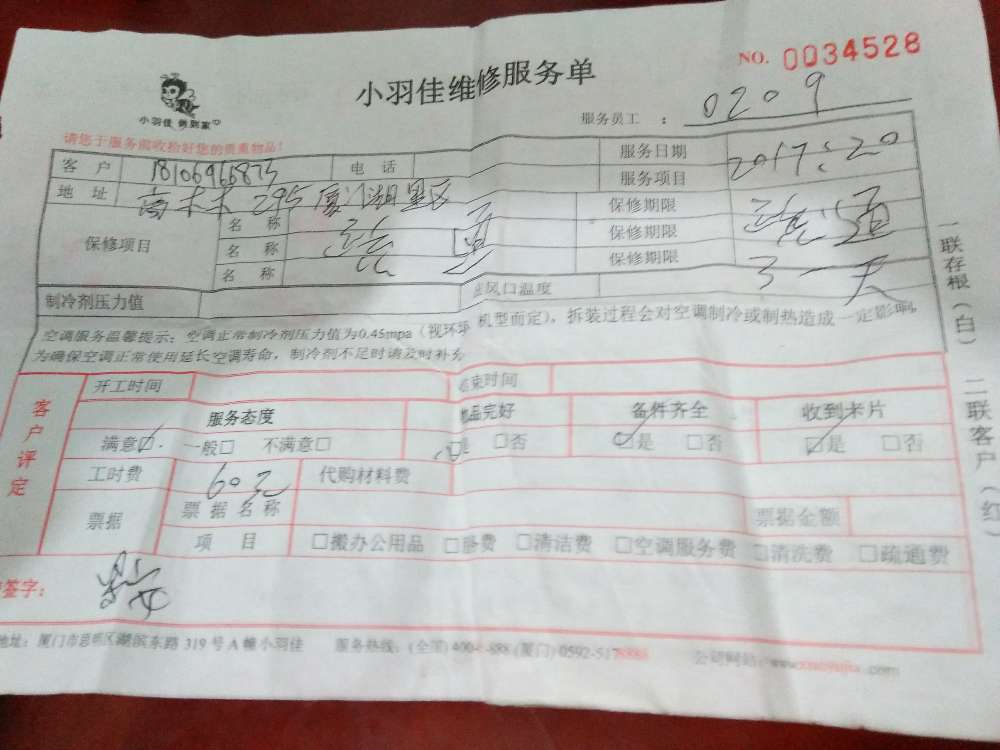 NO. 0034528
小羽佳维修服务单
小羽佳 俩到家
服务员工： 0209
请您于服务前收拾好您的贵重物品！
客户 电话 服务日期
服务项目
地址 295 厦门湖里区 保修期限
保修项目 名称 保修期限
名称 保修期限
名称 三天
制冷剂压力值 风口温度
空调服务温馨提示：空调正常制冷剂压力值为0.45mpa（视环 机型而定），拆装过程会对空调制冷或制热造成一定影响，
为确保空调正常使用延长空调寿命，制冷剂不足时请及时补充
客户评定
开工时间 结束时间
服务态度 物品完好 备件齐全 收到米片
满意☑ 一般□ 不满意□ ☑是 □否 ☑是 □否 ☑是 □否
工时费 60元 代购材料费
票据 票据名称 票据金额
项目 □搬办公用品 □卧费 □清洁费 □空调服务费 □清洗费 □疏通费
签字：
地址：厦门市思明区湖滨东路 319 号 A 幢小羽佳 服务热线：(全国) 400 888 (厦门) 0592-517 公司网站：www.xiaoyujia.com
一联存根（白） 二联客户（红）